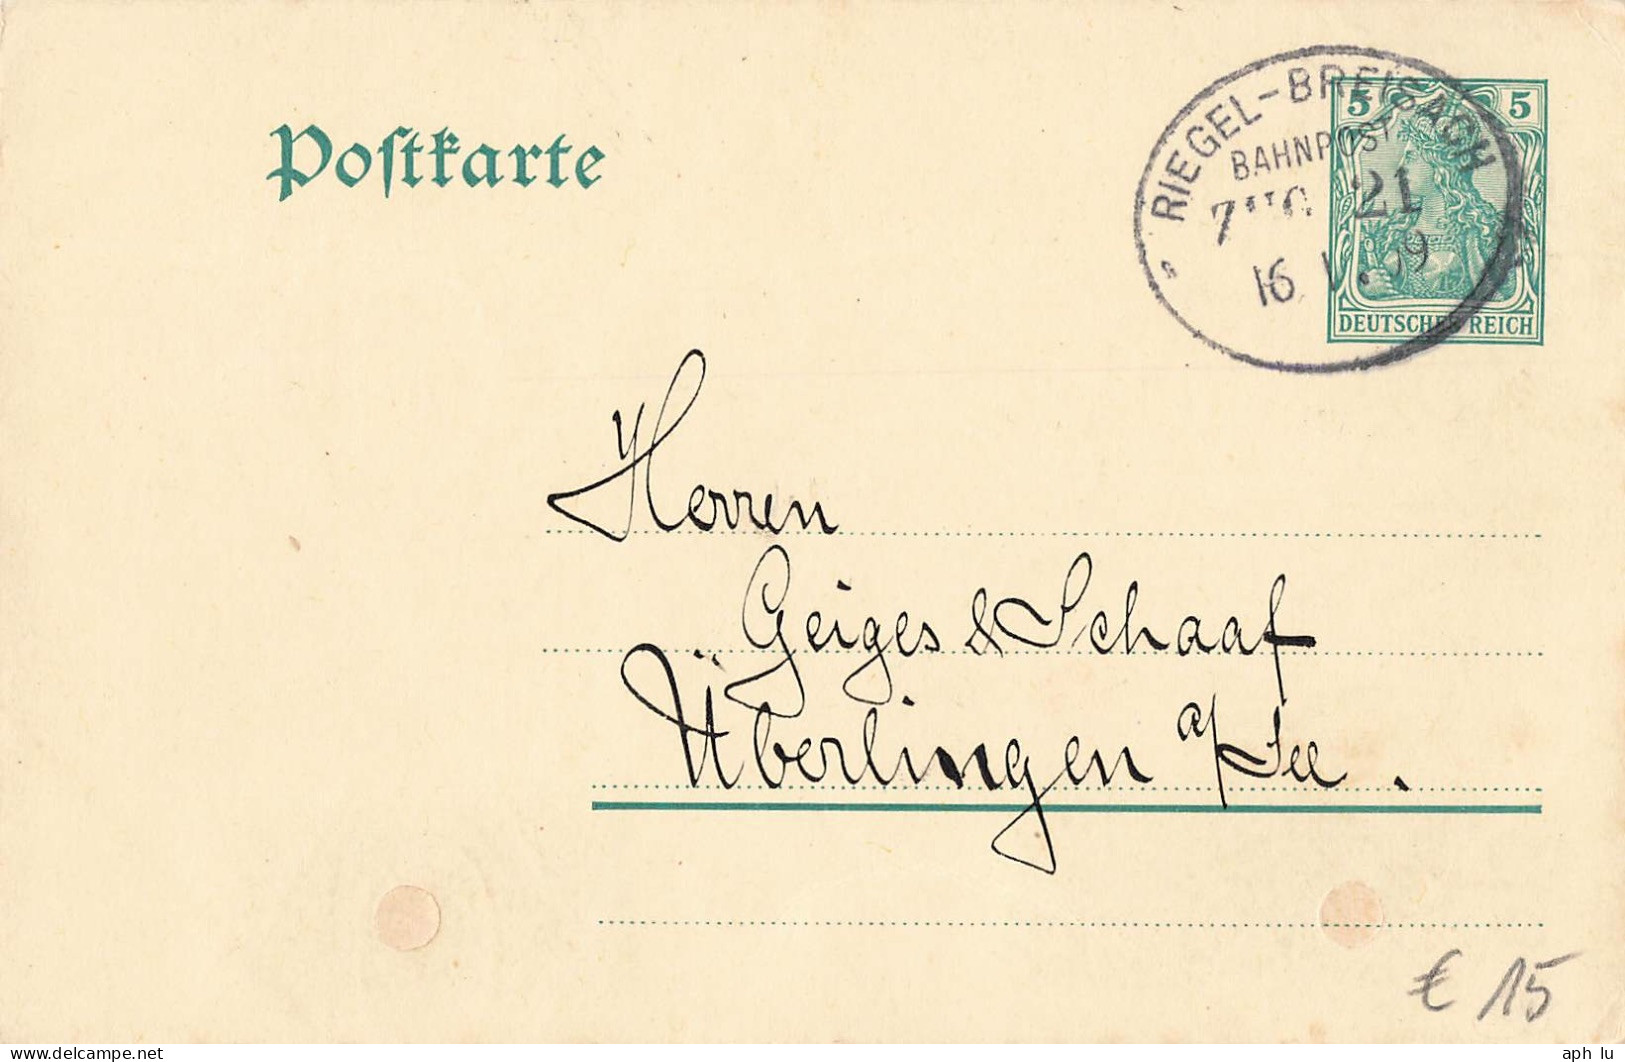 Postkarte
RIEGEL-BREISACH
BAHNPOST
21
16
5 5
DEUTSCHES REICH
Herren
Geiges & Schaaf
Überlingen a/See.
€ 15
aph lu